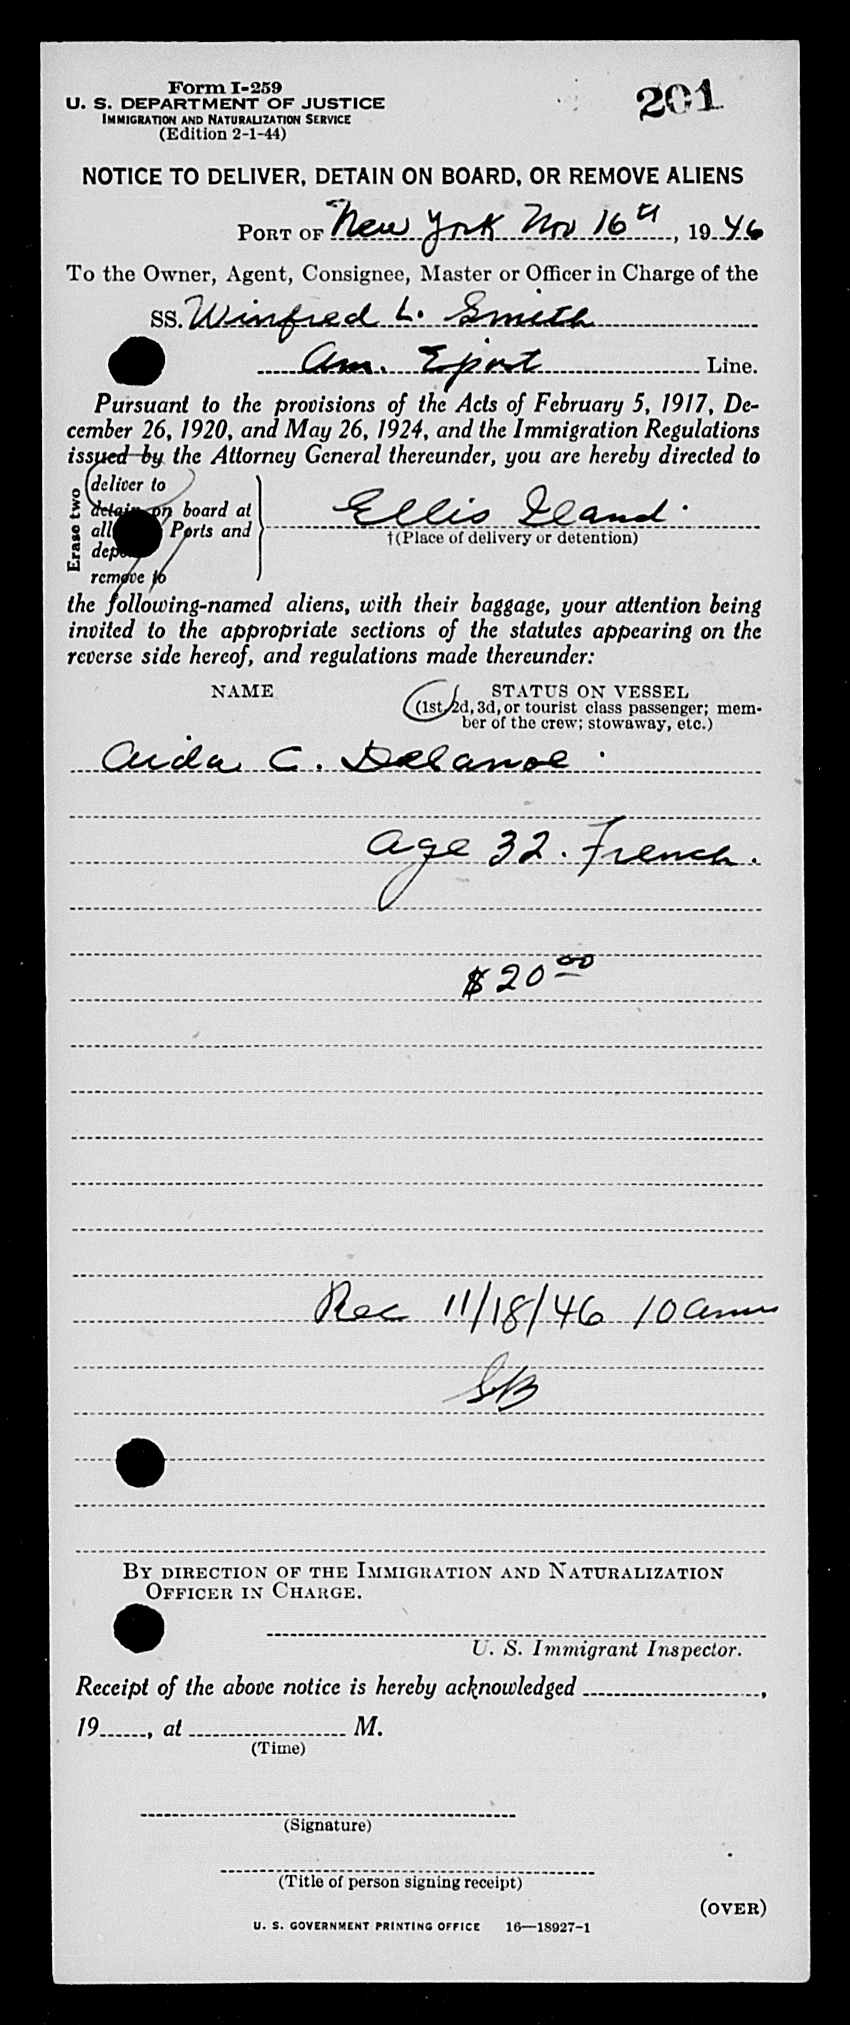 Form I-259
U. S. DEPARTMENT OF JUSTICE
IMMIGRATION AND NATURALIZATION SERVICE
(Edition 2-1-44)
201
NOTICE TO DELIVER, DETAIN ON BOARD, OR REMOVE ALIENS
PORT OF New York Nov 16th, 1946
To the Owner, Agent, Consignee, Master or Officer in Charge of the
SS. Winfred L. Smith
Am. Eport Line.
Pursuant to the provisions of the Acts of February 5, 1917, De-
cember 26, 1920, and May 26, 1924, and the Immigration Regulations
issued by the Attorney General thereunder, you are hereby directed to
Erase two
deliver to
detain on board at
all Ports and
remove to
Ellis Iland
†(Place of delivery or detention)
the following-named aliens, with their baggage, your attention being
invited to the appropriate sections of the statutes appearing on the
reverse side hereof, and regulations made thereunder:
NAME STATUS ON VESSEL
(1st, 2d, 3d, or tourist class passenger; mem-
ber of the crew; stowaway, etc.)
Aida C. Delanoe
age 32. French.
$20 00
Rec 11/18/46 10 am
BY DIRECTION OF THE IMMIGRATION AND NATURALIZATION
OFFICER IN CHARGE.
U. S. Immigrant Inspector.
Receipt of the above notice is hereby acknowledged ,
19 , at M.
(Time)
(Signature)
(Title of person signing receipt)
(OVER)
U. S. GOVERNMENT PRINTING OFFICE 16—18927-1